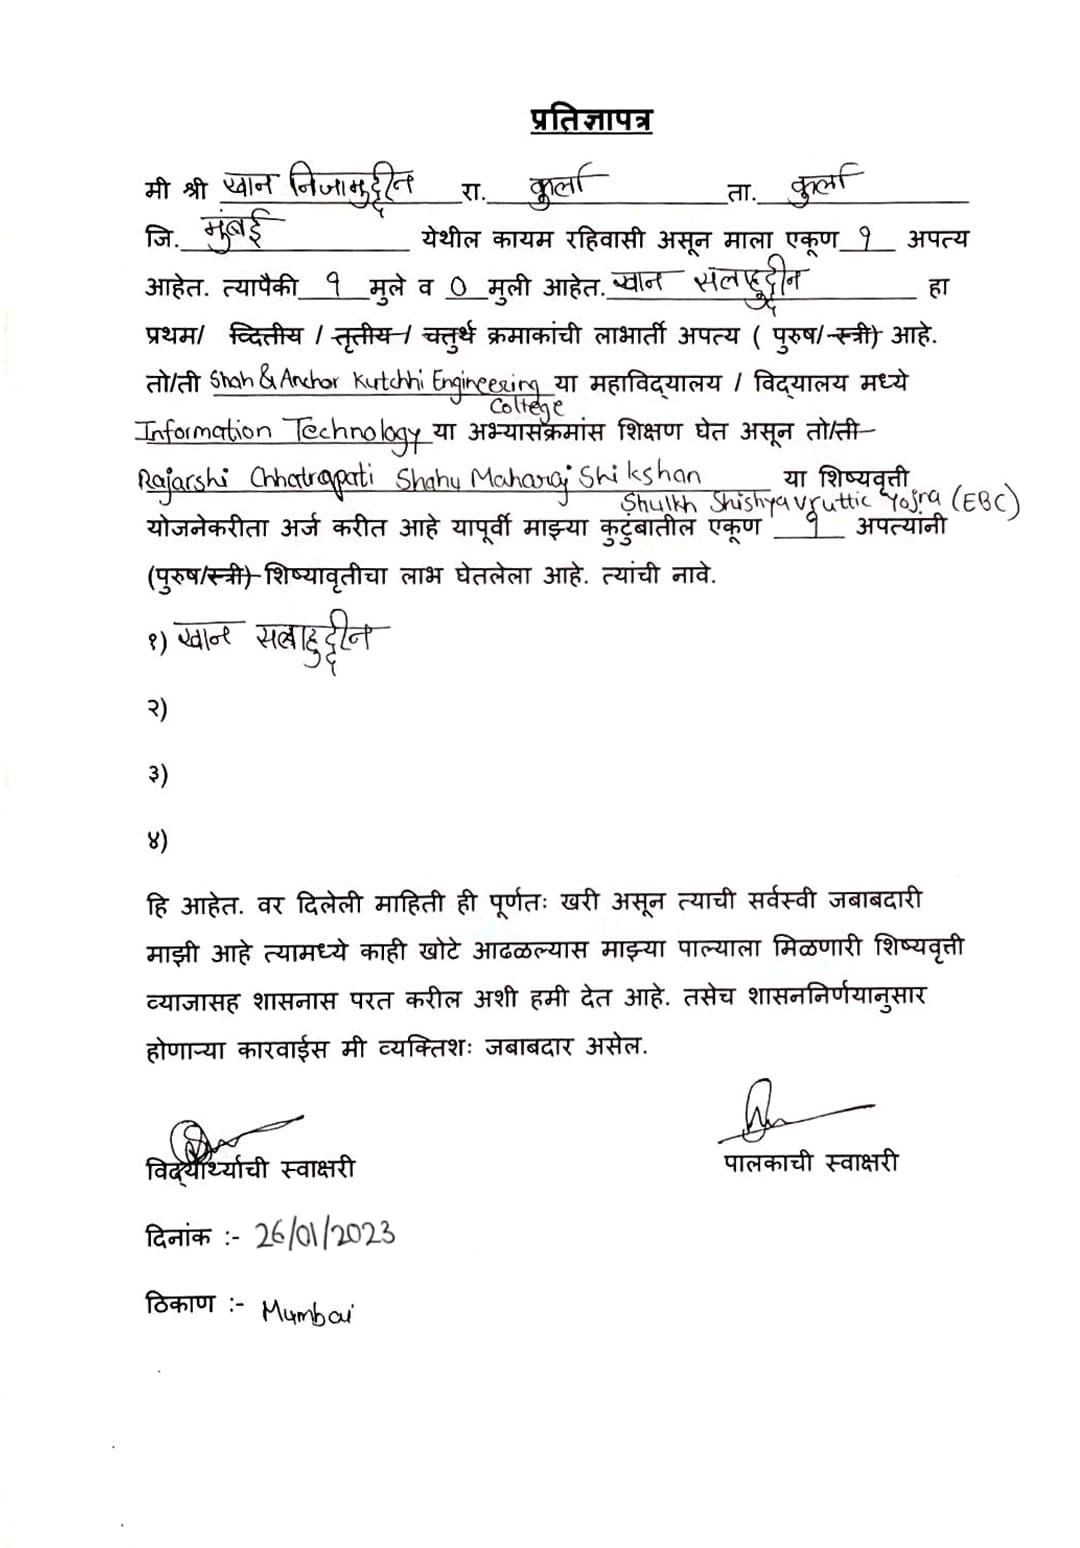 प्रतिज्ञापत्र
मी श्री खान निजामुद्दीन रा. कुर्ला ता. कुर्ला
जि. मुंबई येथील कायम रहिवासी असून माला एकूण १ अपत्य
आहेत. त्यापैकी १ मुले व 0 मुली आहेत. खान सलाहुद्दीन हा
प्रथम/ व्दितीय / तृतीय / चतुर्थ क्रमाकांची लाभार्ती अपत्य ( पुरुष/ स्त्री) आहे.
तो/ती Shah & Anchor Kutchhi Engineering College या महाविद्यालय / विद्यालय मध्ये
Information Technology या अभ्यासक्रमांस शिक्षण घेत असून तो/ती
Rajarshi Chhatrapati Shahu Maharaj Shikshan या शिष्यवृत्ती
Shulkh Shishyavruttic Yojna (EBC)
योजनेकरीता अर्ज करीत आहे यापूर्वी माझ्या कुटुंबातील एकूण १ अपत्यांनी
(पुरुष/स्त्री) शिष्यावृतीचा लाभ घेतलेला आहे. त्यांची नावे.
१) खान सलाहुद्दीन
२)
३)
४)
हि आहेत. वर दिलेली माहिती ही पूर्णतः खरी असून त्याची सर्वस्वी जबाबदारी
माझी आहे त्यामध्ये काही खोटे आढळल्यास माझ्या पाल्याला मिळणारी शिष्यवृत्ती
व्याजासह शासनास परत करील अशी हमी देत आहे. तसेच शासननिर्णयानुसार
होणाऱ्या कारवाईस मी व्यक्तिशः जबाबदार असेल.
विद्यार्थ्याची स्वाक्षरी पालकाची स्वाक्षरी
दिनांक :- 26/01/2023
ठिकाण :- Mumbai